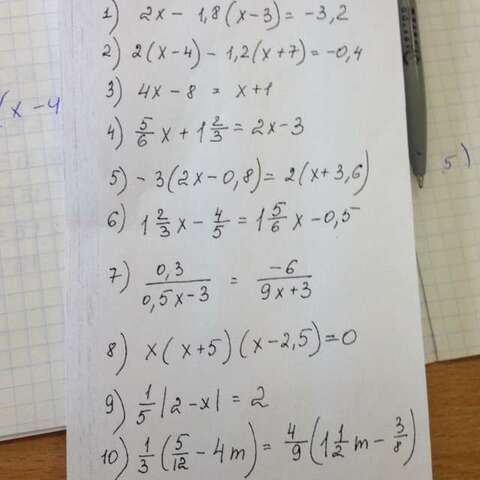 1) 2x - 1,8(x-3) = -3,2
2) 2(x-4) - 1,2(x+7) = -0,4
3) 4x - 8 = x+1
4) 5/6 x + 1 2/3 = 2x - 3
5) -3(2x-0,8) = 2(x+3,6)
6) 1 2/3 x - 4/5 = 1 5/6 x - 0,5
7) 0,3/(0,5x-3) = -6/(9x+3)
8) x(x+5)(x-2,5) = 0
9) 1/5 |2-x| = 2
10) 1/3 (5/12 - 4m) = 4/9 (1 1/2 m - 3/8)
(x-4
5)